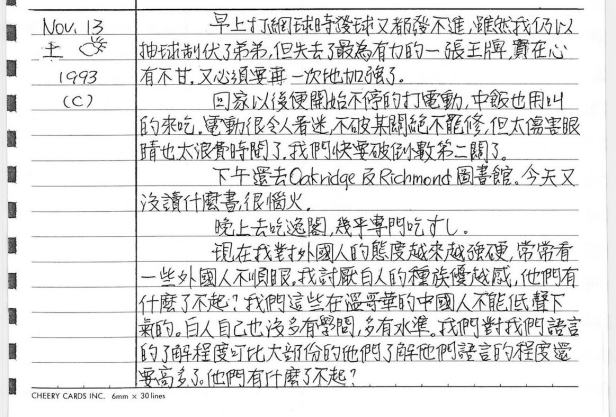 Nov. 13
土
1993
(C)
早上打網球時發球又都發不進,雖然我仍以
抽球制伏了弟弟,但失去了最為有力的一張王牌,實在心
有不甘.又必須要再一次地加強了。
回家以後便開始不停的打電動,中飯也用叫
的來吃.電動很令人着迷,不破某關絕不罷修,但太傷害眼
睛也太浪費時間了.我們快要破倒數第二關了。
下午還去Oakridge及Richmond圖書館。今天又
沒讀什麼書,很惱火.
晚上去吃逸閣,幾乎專門吃すし。
現在我對外國人的態度越來越強硬,常常看
一些外國人不順眼.我討厭白人的種族優越感,他們有
什麼了不起?我們這些在溫哥華的中國人不能低聲下
氣的。白人自己也沒多有學問,多有水準。我們對我們語言
的了解程度可比大部份的他們了解他們語言的程度還
要高多了。他們有什麼了不起?
CHEERY CARDS INC. 6mm × 30 lines